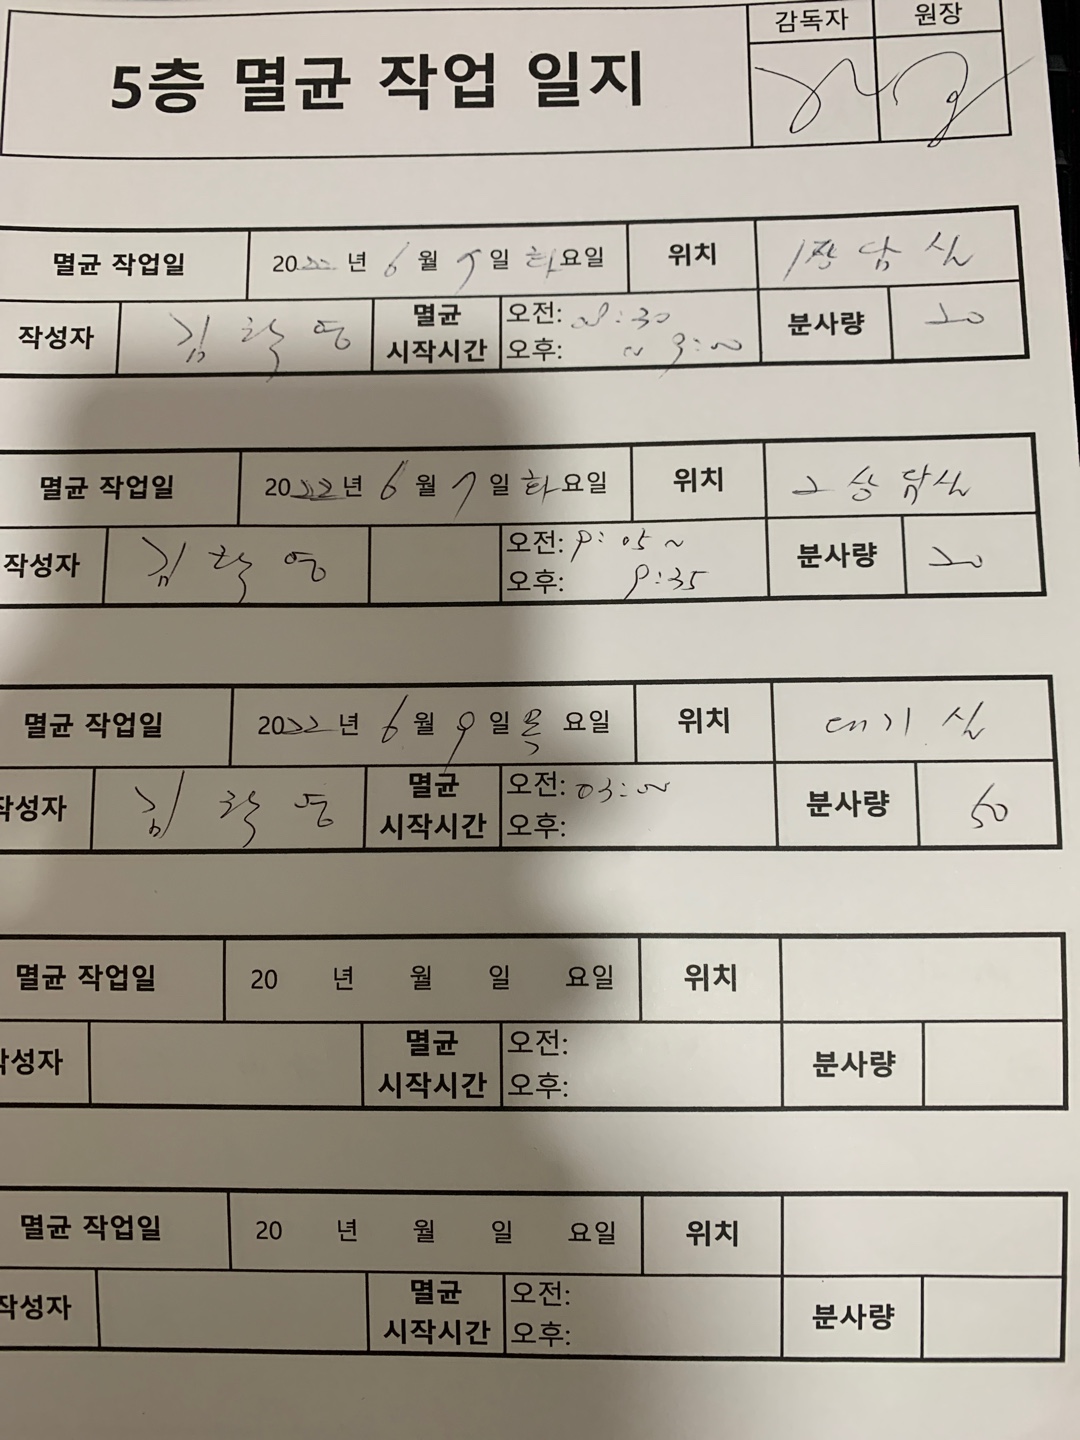 감독자 원장
5층 멸균 작업 일지
멸균 작업일 2022년 6월 7일 화요일 위치 1상담실
작성자 김학영 멸균 시작시간 오전: 08:30 분사량 20
오후: ~ 9:00
멸균 작업일 2022년 6월 7일 화요일 위치 2상담실
작성자 김학영 오전: 9:05 ~ 분사량 20
오후: 9:35
멸균 작업일 2022년 6월 9일 목요일 위치 대기실
작성자 김학영 멸균 시작시간 오전: 03:00 분사량 50
오후:
멸균 작업일 20 년 월 일 요일 위치
작성자 멸균 시작시간 오전: 분사량
오후:
멸균 작업일 20 년 월 일 요일 위치
작성자 멸균 시작시간 오전: 분사량
오후: